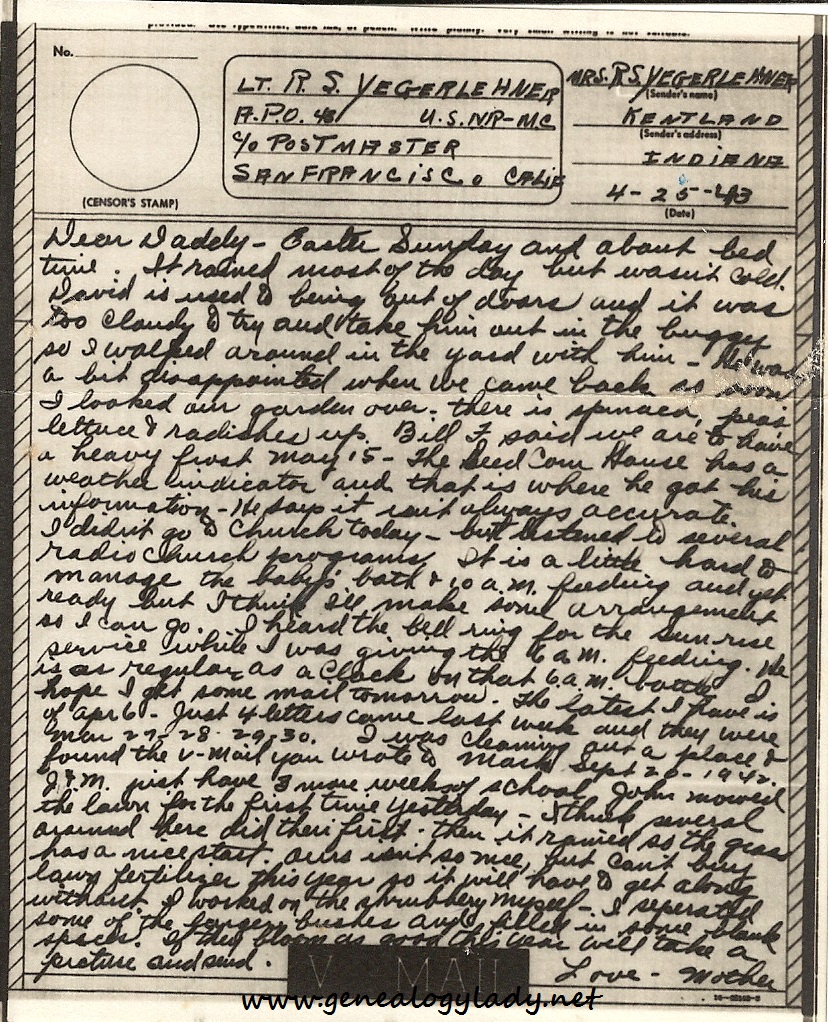 provided. Use typewriter, dark ink, or pencil. Write plainly. Very small writing is not suitable.
No.
(CENSOR'S STAMP)
LT. R. S. YEGERLEHNER
A.P.O. 43 U.S.NR-MC
c/o POSTMASTER
SAN FRANCISCO CALIF
MRS. R.S. YEGERLEHNER
(Sender's name)
KENTLAND
(Sender's address)
INDIANA
4-25-43
(Date)
Dear Daddy - Easter Sunday and about bed
time. It rained most of the day but wasn't cold.
David is used to being out of doors and it was
too cloudy to try and take him out in the buggy
so I walked around in the yard with him - He was
a bit disappointed when we came back so soon
I looked our garden over - there is spinach, peas
lettuce & radishes up. Bill F. said we are to have
a heavy frost May 15 - The Seed Corn House has a
weather indicator and that is where he got his
information - He says it isn't always accurate.
I didn't go to Church today - but listened to several
radio Church programs. It is a little hard to
manage the baby's bath & 10 a.m. feeding and get
ready but I think I'll make some arrangement
so I can go. I heard the bell ring for the sunrise
service while I was giving the 6 a.m. feeding. He
is as regular as a clock on that 6 a.m. bottle. I
hope I get some mail tomorrow. The latest I have is
of apr 6 - Just 4 letters came last week and they were
Mar 27-28-29-30. I was cleaning out a place &
found the V-Mail you wrote to Mark Sept 20-1942.
J & M. just have 3 more weeks of school. John mowed
the lawn for the first time yesterday - I think several
around here did their first - then it rained so the grass
has a nice start. Ours isn't so nice, but can't buy
lawn fertilizer this year so it will have to get along
without. I worked on the shrubbery myself - I seperated
some of the larger bushes and filled in some blank
spaces. If they bloom as good this year will take a
picture and send.
Love - Mother
V - MAIL
www.genealogylady.net